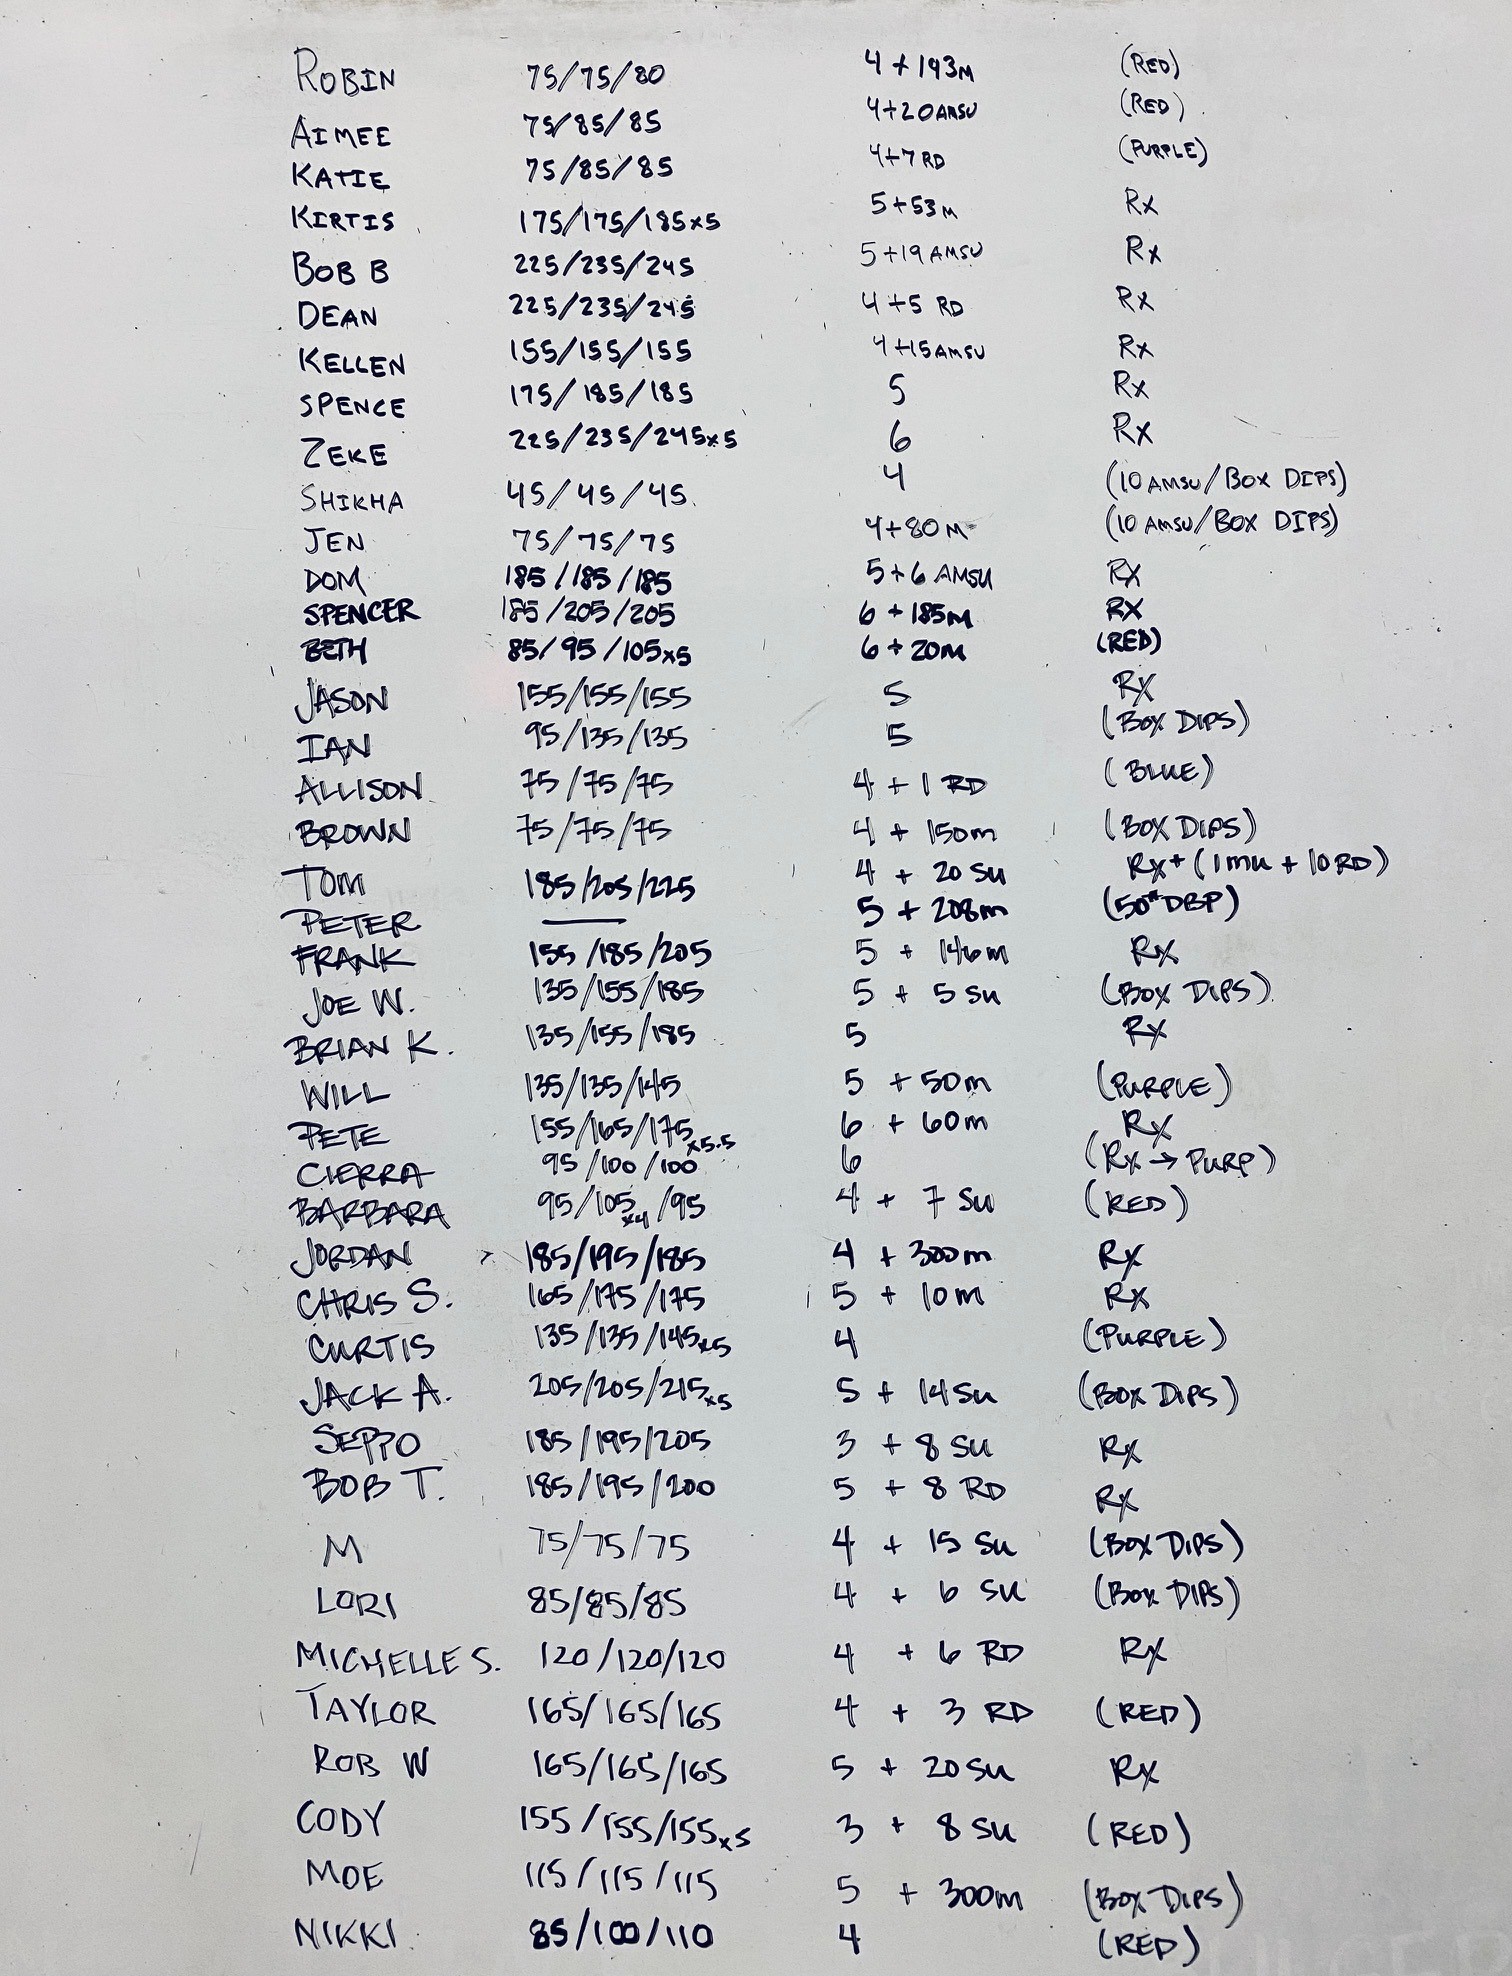 ROBIN 75/75/80 4+193M (RED)
AIMEE 75/85/85 4+20AMSU (RED)
KATIE 75/85/85 4+7 RD (PURPLE)
KIRTIS 175/175/185x5 5+53M Rx
BOB B 225/235/245 5+19 AMSU Rx
DEAN 225/235/245 4+5 RD Rx
KELLEN 155/155/155 4+15AMSU Rx
SPENCE 175/185/185 5 Rx
ZEKE 225/235/245x5 6 Rx
SHIKHA 45/45/45 4 (10 AMSU/BOX DIPS)
JEN 75/75/75 4+80M (10 AMSU/BOX DIPS)
DOM 185/185/185 5+6 AMSU RX
SPENCER 185/205/205 6+185M RX
BETH 85/95/105x5 6+20M (RED)
JASON 155/155/155 5 Rx
IAN 95/135/135 5 (BOX DIPS)
ALLISON 75/75/75 4+1 RD (BLUE)
BROWN 75/75/75 4+150m (BOX DIPS)
TOM 185/205/225 4+20 SU Rx+ (1mu+10RD)
PETER — 5+208m (50# DBP)
FRANK 155/185/205 5+146m Rx
JOE W. 135/155/185 5+5 SU (BOX DIPS)
BRIAN K. 135/155/185 5 Rx
WILL 135/135/145 5+50m (PURPLE)
PETE 155/165/175x5.5 6+60m Rx
CIERRA 95/100/100 6 (Rx→PURP)
BARBARA 95/105x4/95 4+7 SU (RED)
JORDAN 185/195/185 4+300m Rx
CHRIS S. 165/175/175 5+10m Rx
CURTIS 135/135/145x5 4 (PURPLE)
JACK A. 205/205/215x5 5+14SU (BOX DIPS)
SEPPO 185/195/205 3+8 SU Rx
BOB T. 185/195/200 5+8 RD Rx
M 75/75/75 4+15 SU (BOX DIPS)
LORI 85/85/85 4+6 SU (BOX DIPS)
MICHELLE S. 120/120/120 4+6 RD Rx
TAYLOR 165/165/165 4+3 RD (RED)
ROB W 165/165/165 5+20SU Rx
CODY 155/155/155x5 3+8 SU (RED)
MOE 115/115/115 5+300m (BOX DIPS)
NIKKI 85/100/110 4 (RED)